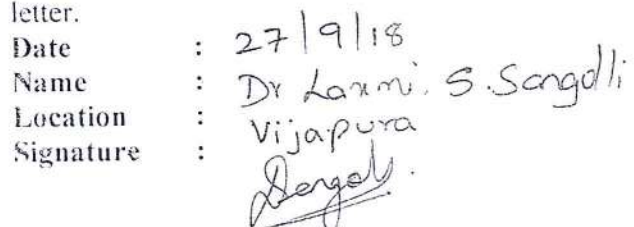 letter.
Date : 27/9/18
Name : Dr Laxmi. S. Sangolli
Location : Vijapura
Signature :